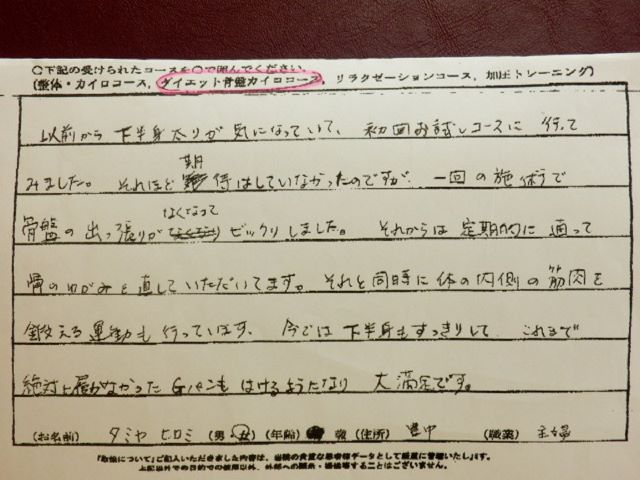 ○下記の受けられたコースを○で囲んでください。
(整体・カイロコース, ダイエット骨盤カイロコース, リラクゼーションコース, 加圧トレーニング)
以前から下半身太りが気になっていて、初回お試しコースに行って
みました。それほど期待はしていなかったのですが、一回の施術で
骨盤の出っ張りがなくなってビックリしました。それからは定期的に通って
骨のゆがみを直していただいてます。それと同時に体の内側の筋肉を
鍛える運動も行っています。今では下半身もすっきりして これまで
絶対に履けなかったGパンもはけるようになり 大満足です。
(お名前) タミヤ ヒロミ (男・女) (年齢) 歳 (住所) 豊中 (職業) 主婦
「取扱について」ご記入いただきました内容は、当院の貴重な患者様データとして厳重に管理いたします。
上記以外での目的での使用以外、外部への開示・提供等することはございません。